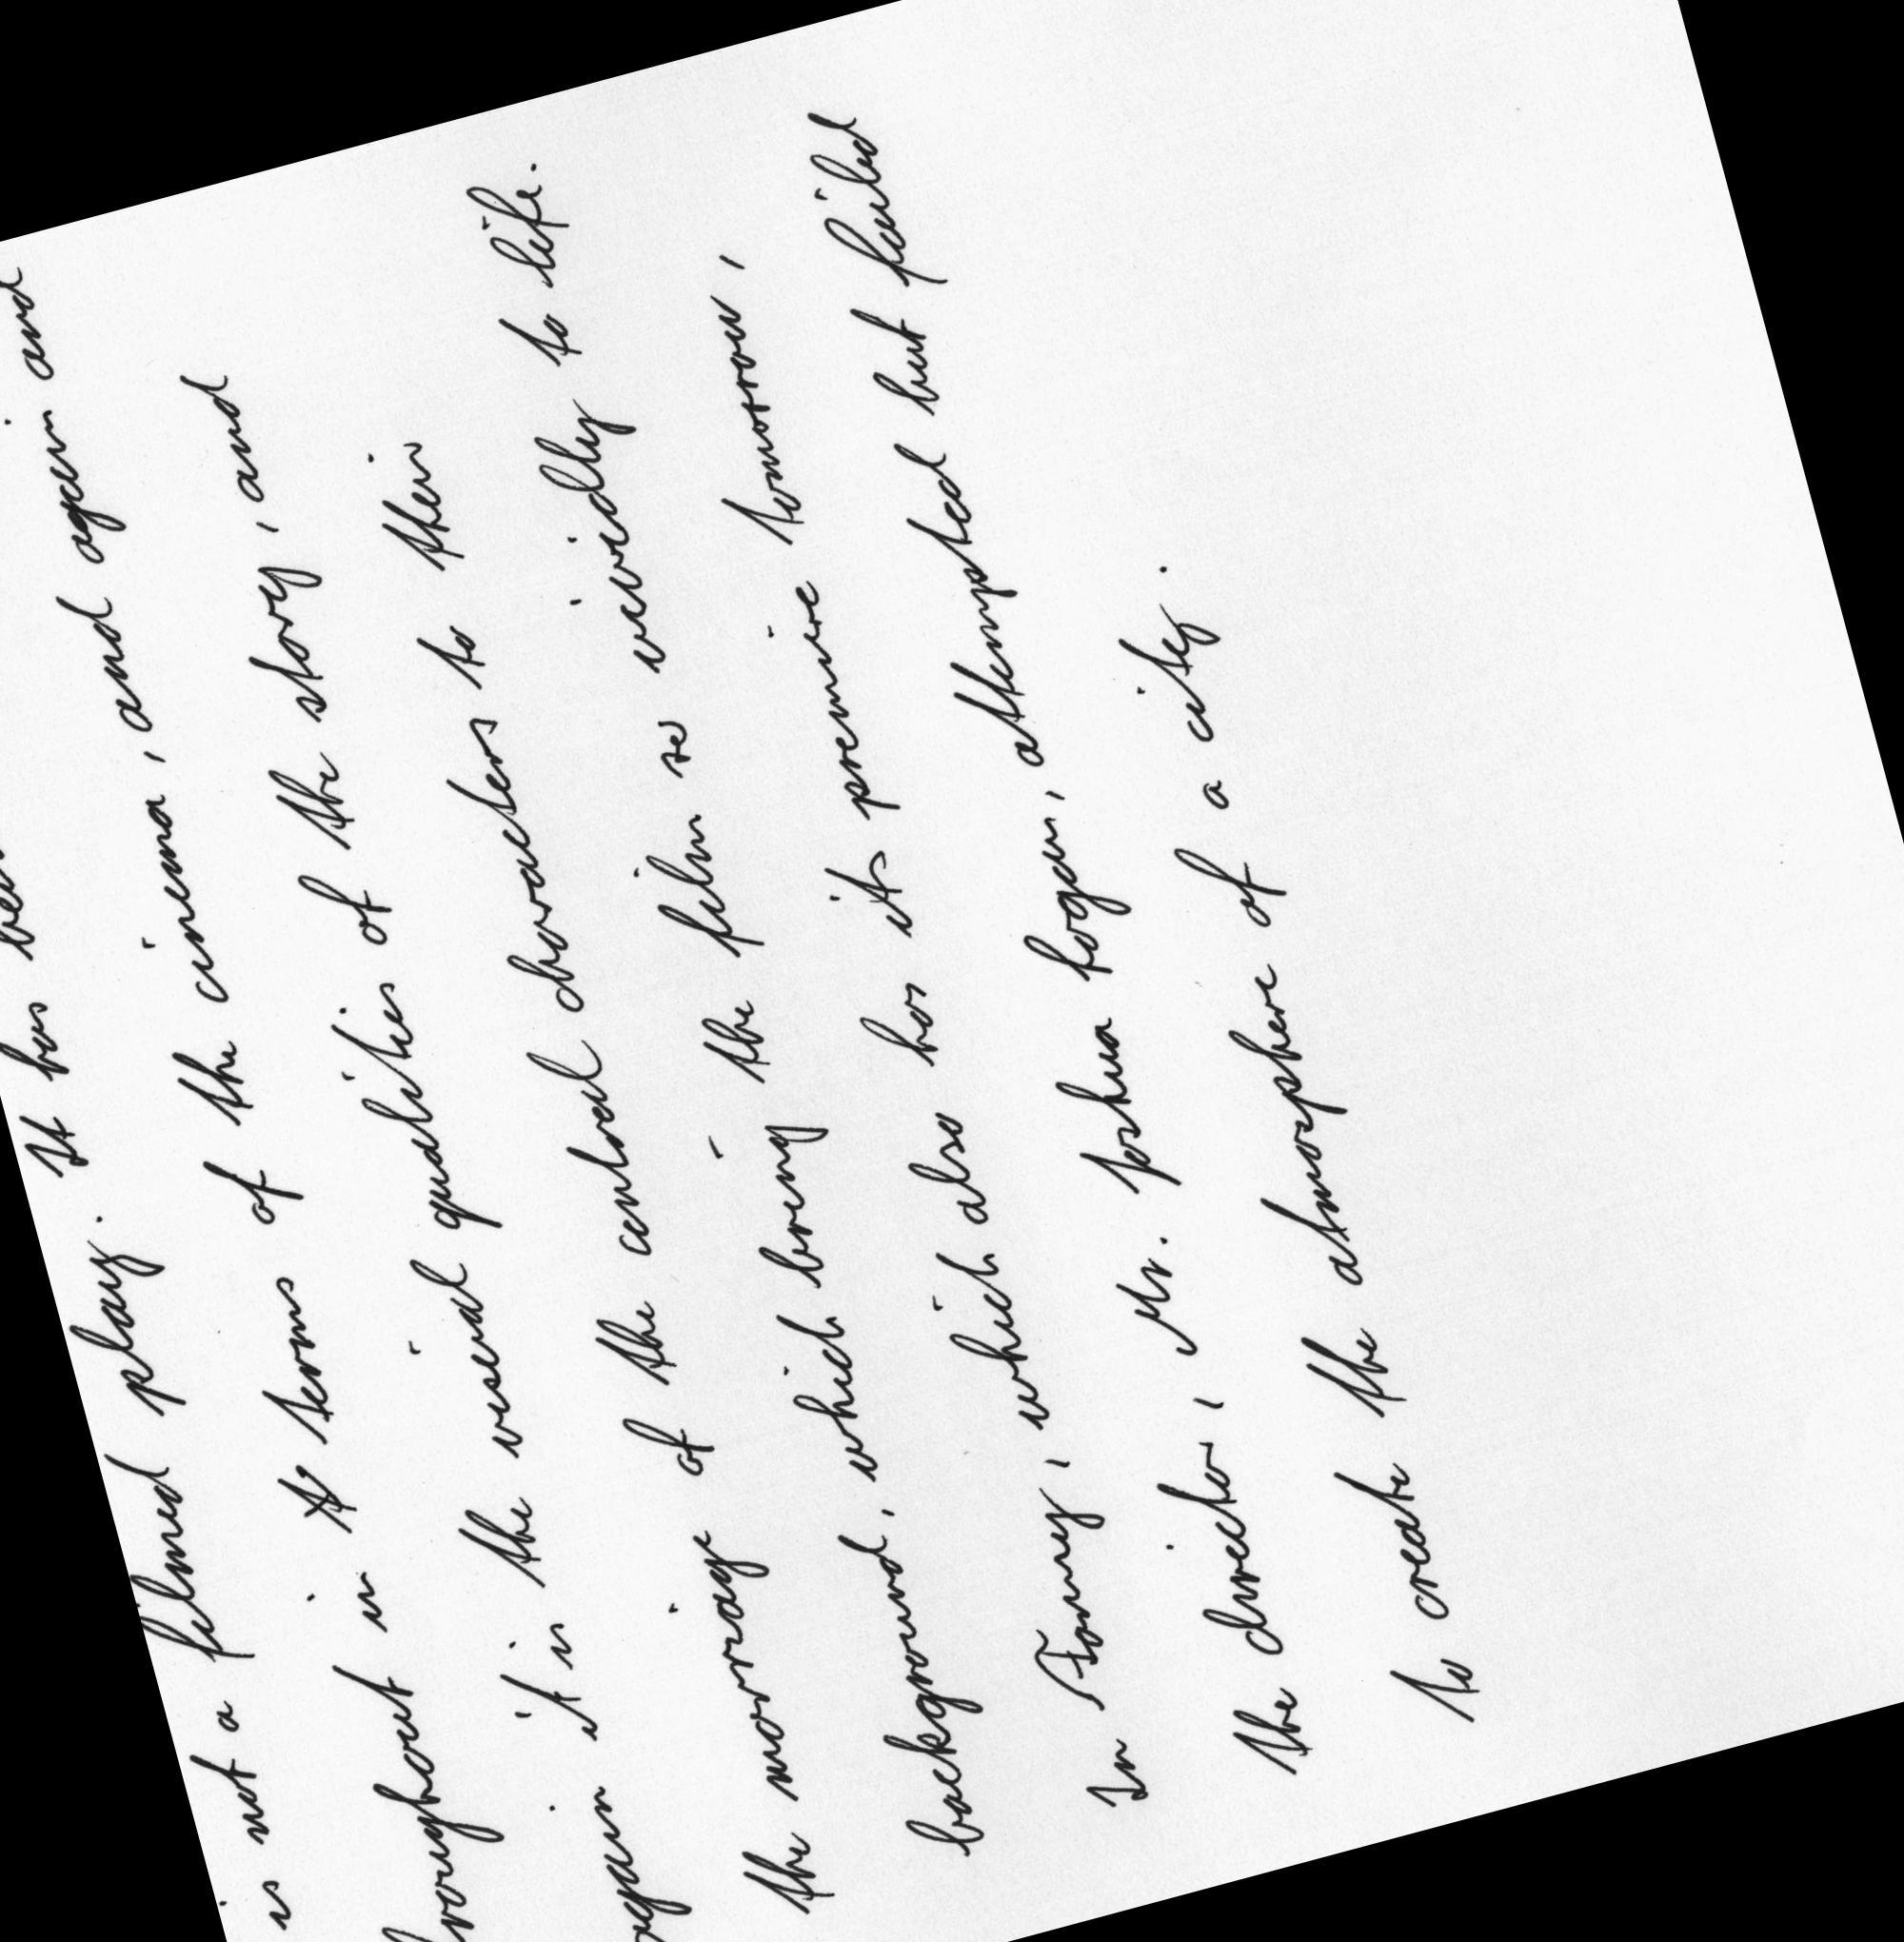 is not a filmed play. It has
throughout in terms of the cinema, and again and
again it is the visual qualities of the story, and
the marriage of the central characters to their
background, which bring the film so vividly to life.
In Fanny, which also has its premiere tomorrow,
the director, Mr. Joshua Logan, attempted but failed
to create the atmosphere of a city.